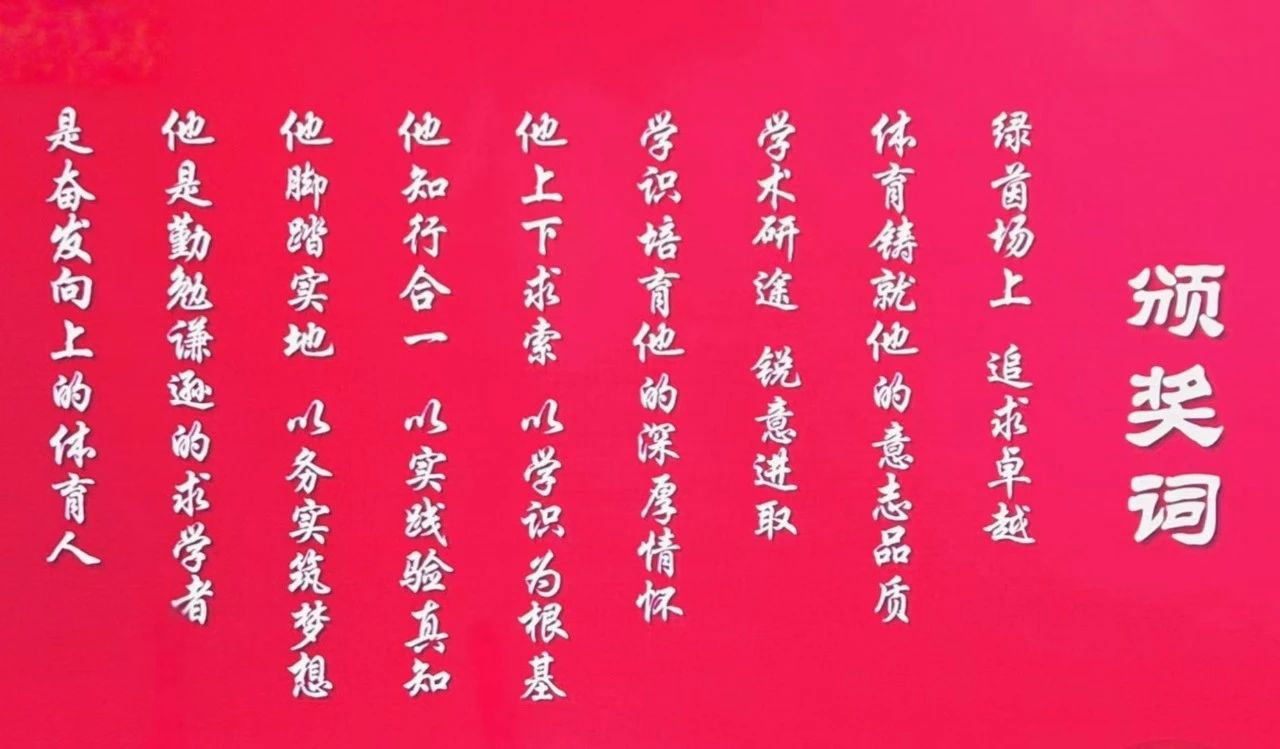 颁奖词
绿茵场上 追求卓越
体育铸就他的意志品质
学术研途 锐意进取
学识培育他的深厚情怀
他上下求索 以学识为根基
他知行合一 以实践验真知
他脚踏实地 以务实筑梦想
他是勤勉谦逊的求学者
是奋发向上的体育人